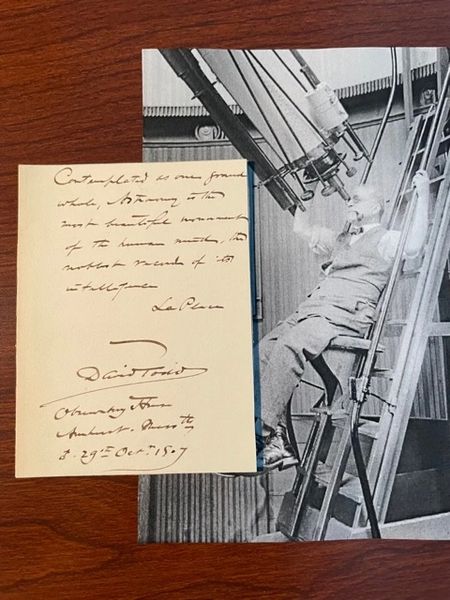 Contemplated as one grand
whole, Astronomy is the
most beautiful monument
of the human mind, the
noblest record of its
intelligence
La Place
David Todd
Observatory House
Amherst. Mass
29th Oct. 1907